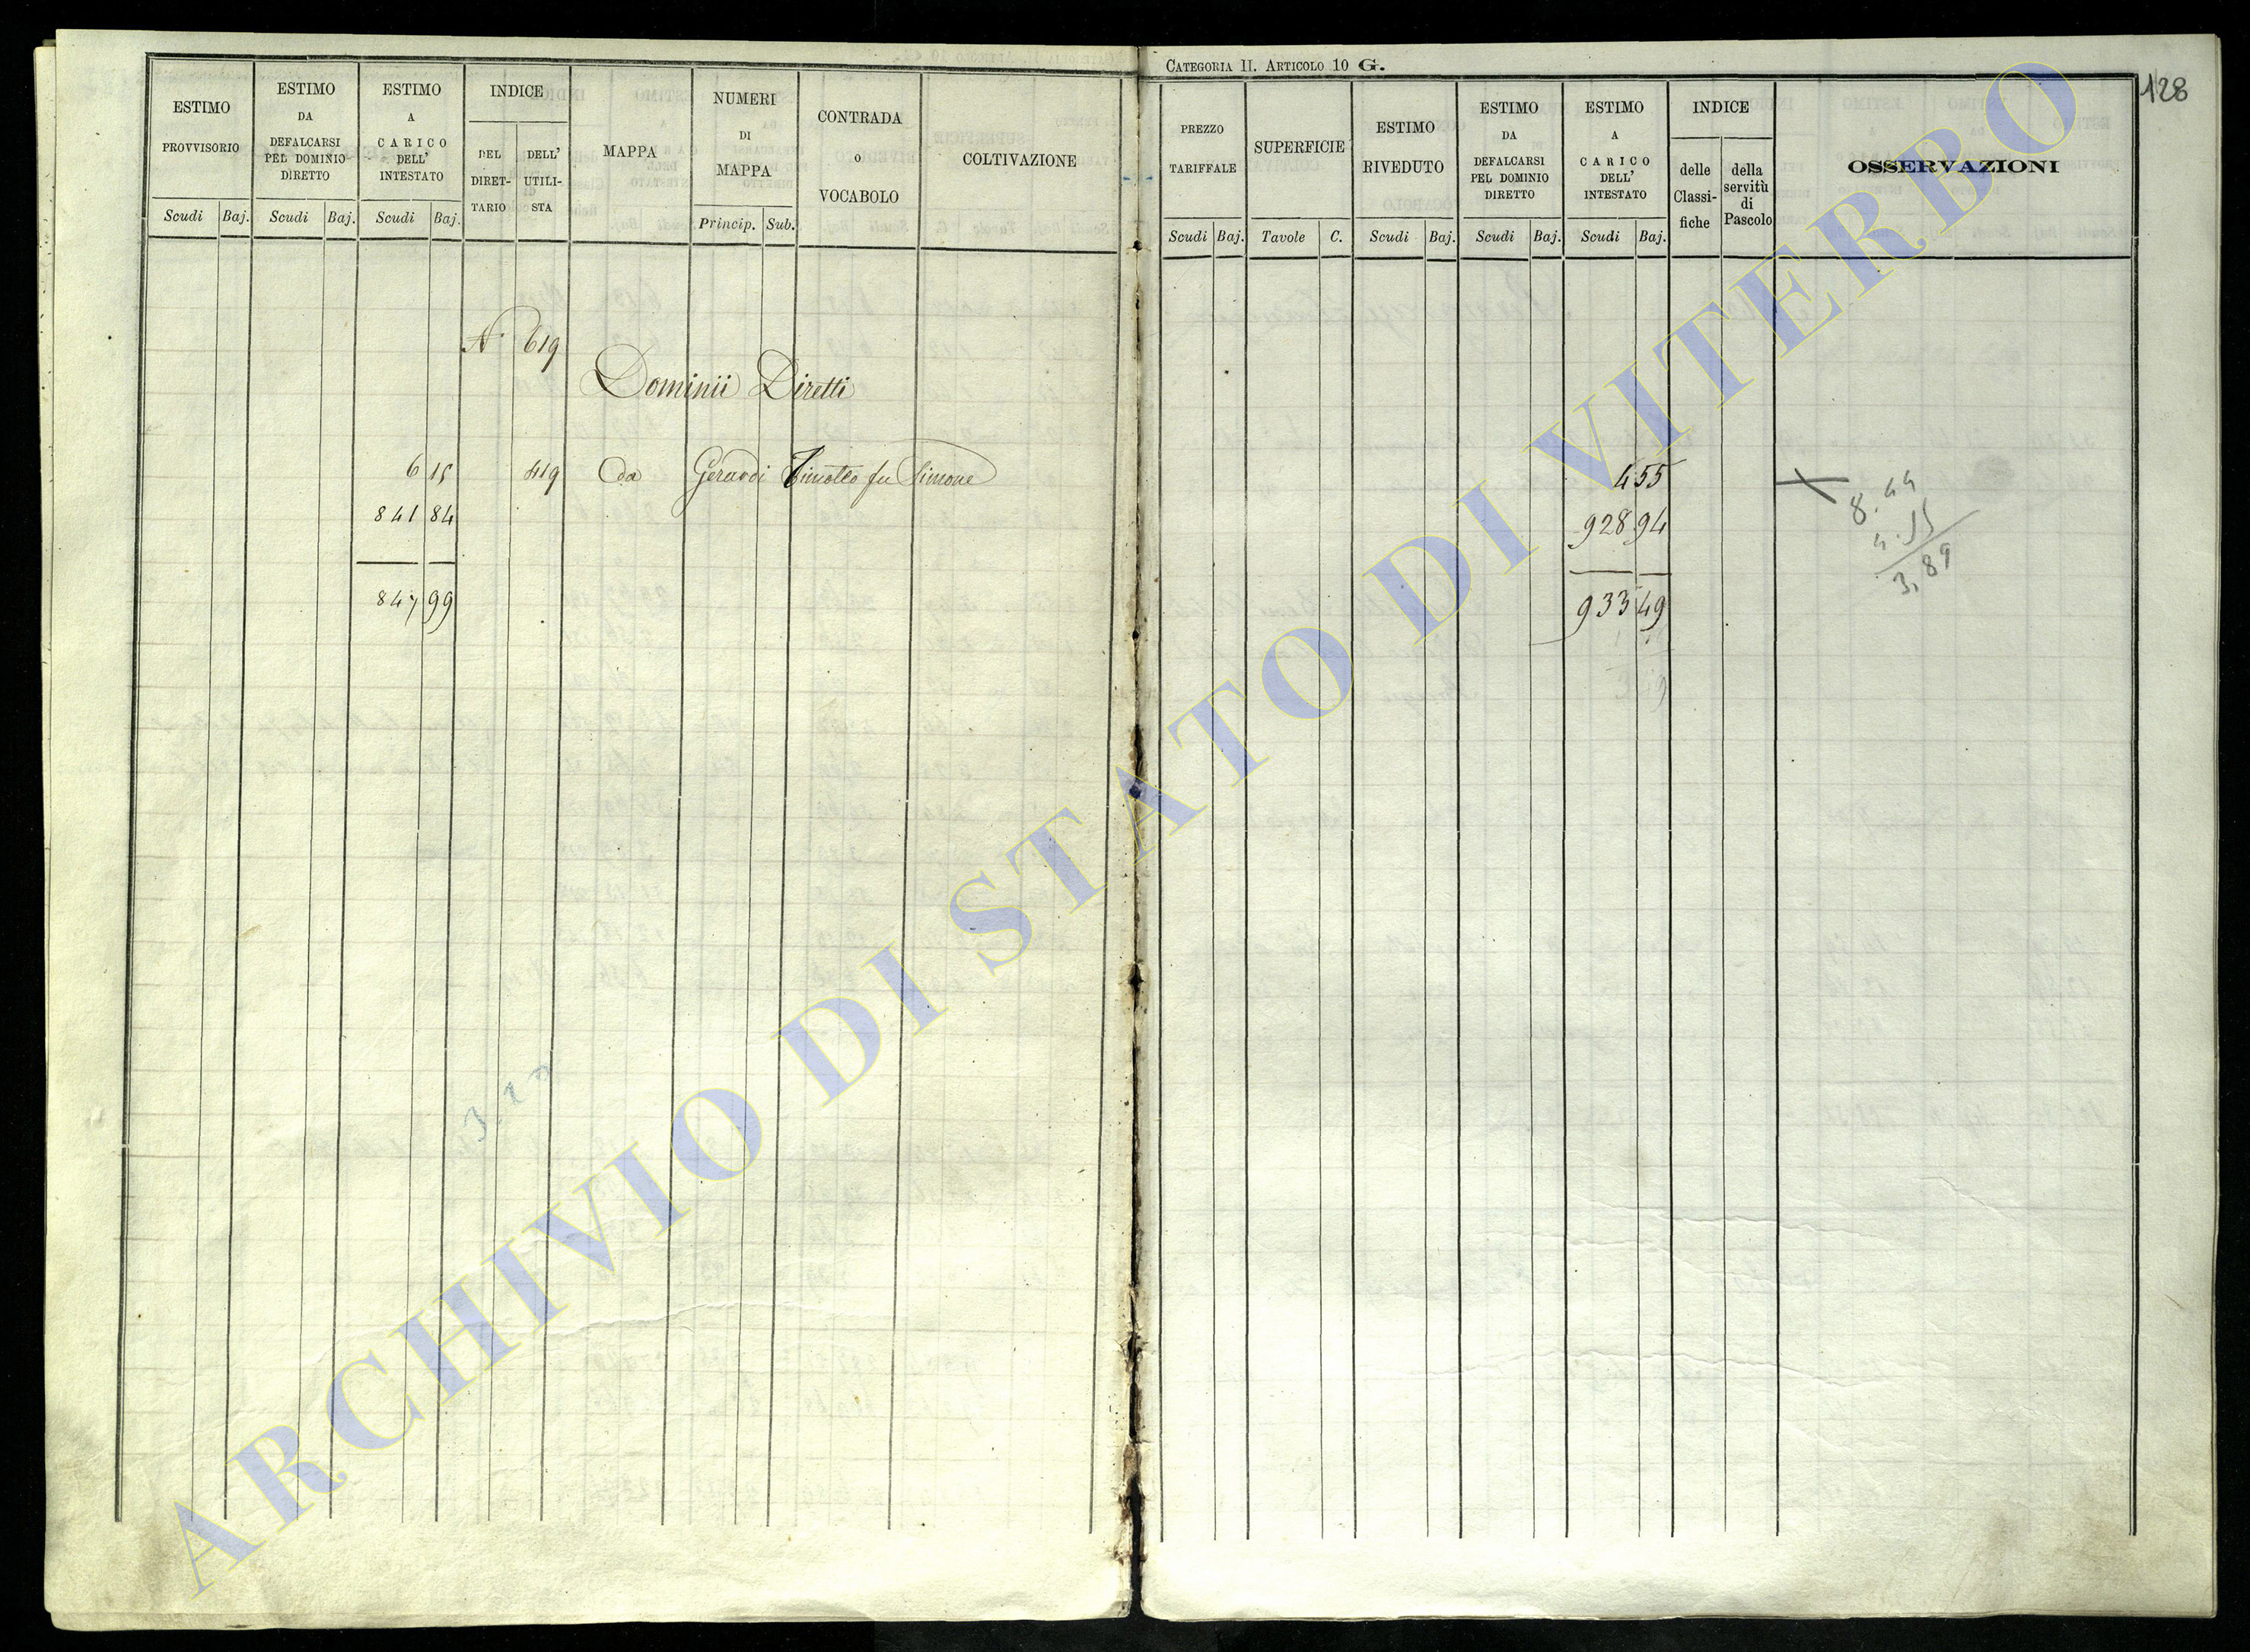 CATEGORIA II. ARTICOLO 10 G.
128
ESTIMO PROVVISORIO
ESTIMO DA DEFALCARSI PEL DOMINIO DIRETTO
ESTIMO A CARICO DELL' INTESTATO
INDICE
DEL DIRET- TARIO
DELL' UTILI- STA
MAPPA
NUMERI DI MAPPA
CONTRADA o VOCABOLO
COLTIVAZIONE
Scudi Baj. Scudi Baj. Scudi Baj. Princip. Sub.
PREZZO TARIFFALE
SUPERFICIE
ESTIMO RIVEDUTO
ESTIMO DA DEFALCARSI PEL DOMINIO DIRETTO
ESTIMO A CARICO DELL' INTESTATO
INDICE
delle Classi- fiche
della servitù di Pascolo
OSSERVAZIONI
Scudi Baj. Tavole C. Scudi Baj. Scudi Baj. Scudi Baj.
N 619
Dominii Diretti
6 15 419 da Gerardi Timoteo fu Simone 4 55
841 84 928 94
847 99 933 49
8.44
4.55
3,89
ARCHIVIO DI STATO DI VITERBO